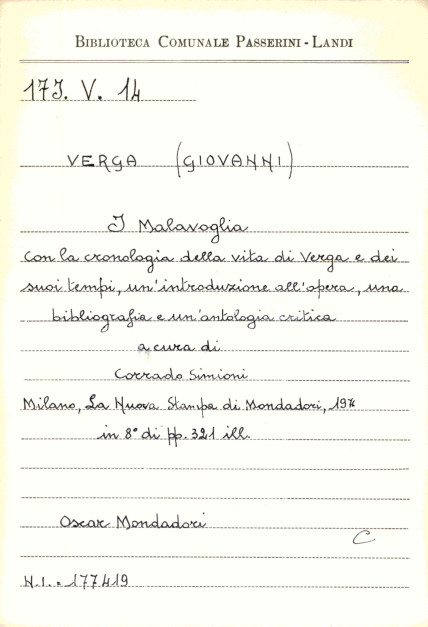 BIBLIOTECA COMUNALE PASSERINI - LANDI
17J. V. 14
VERGA (GIOVANNI)
I Malavoglia
con la cronologia della vita di Verga e dei
suoi tempi, un'introduzione all'opera, una
bibliografia e un'antologia critica
a cura di
Corrado Simioni
Milano, La Nuova Stampa di Mondadori,
in 8° di pp. 321 ill.
Oscar Mondadori
C
N.I. = 177419